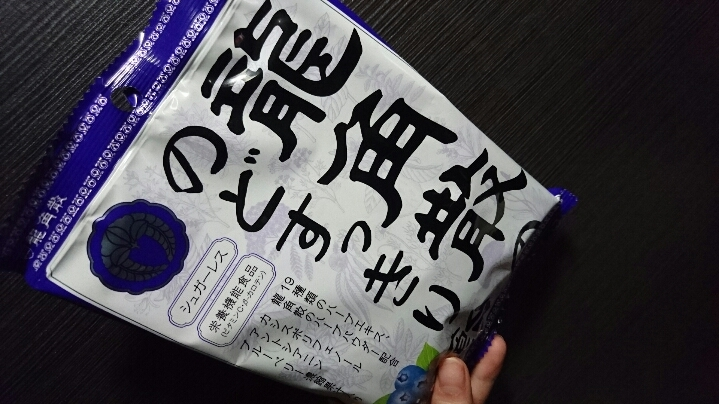 龍角散
龍角散の
のどすっきり
シュガーレス
栄養機能食品
(ビタミンC・β-カロテン)
19種類のハーブエキス、
龍角散のハーブパウダー配合
カシスポリフェノール
アントシアニン
ブルーベリー濃縮果汁